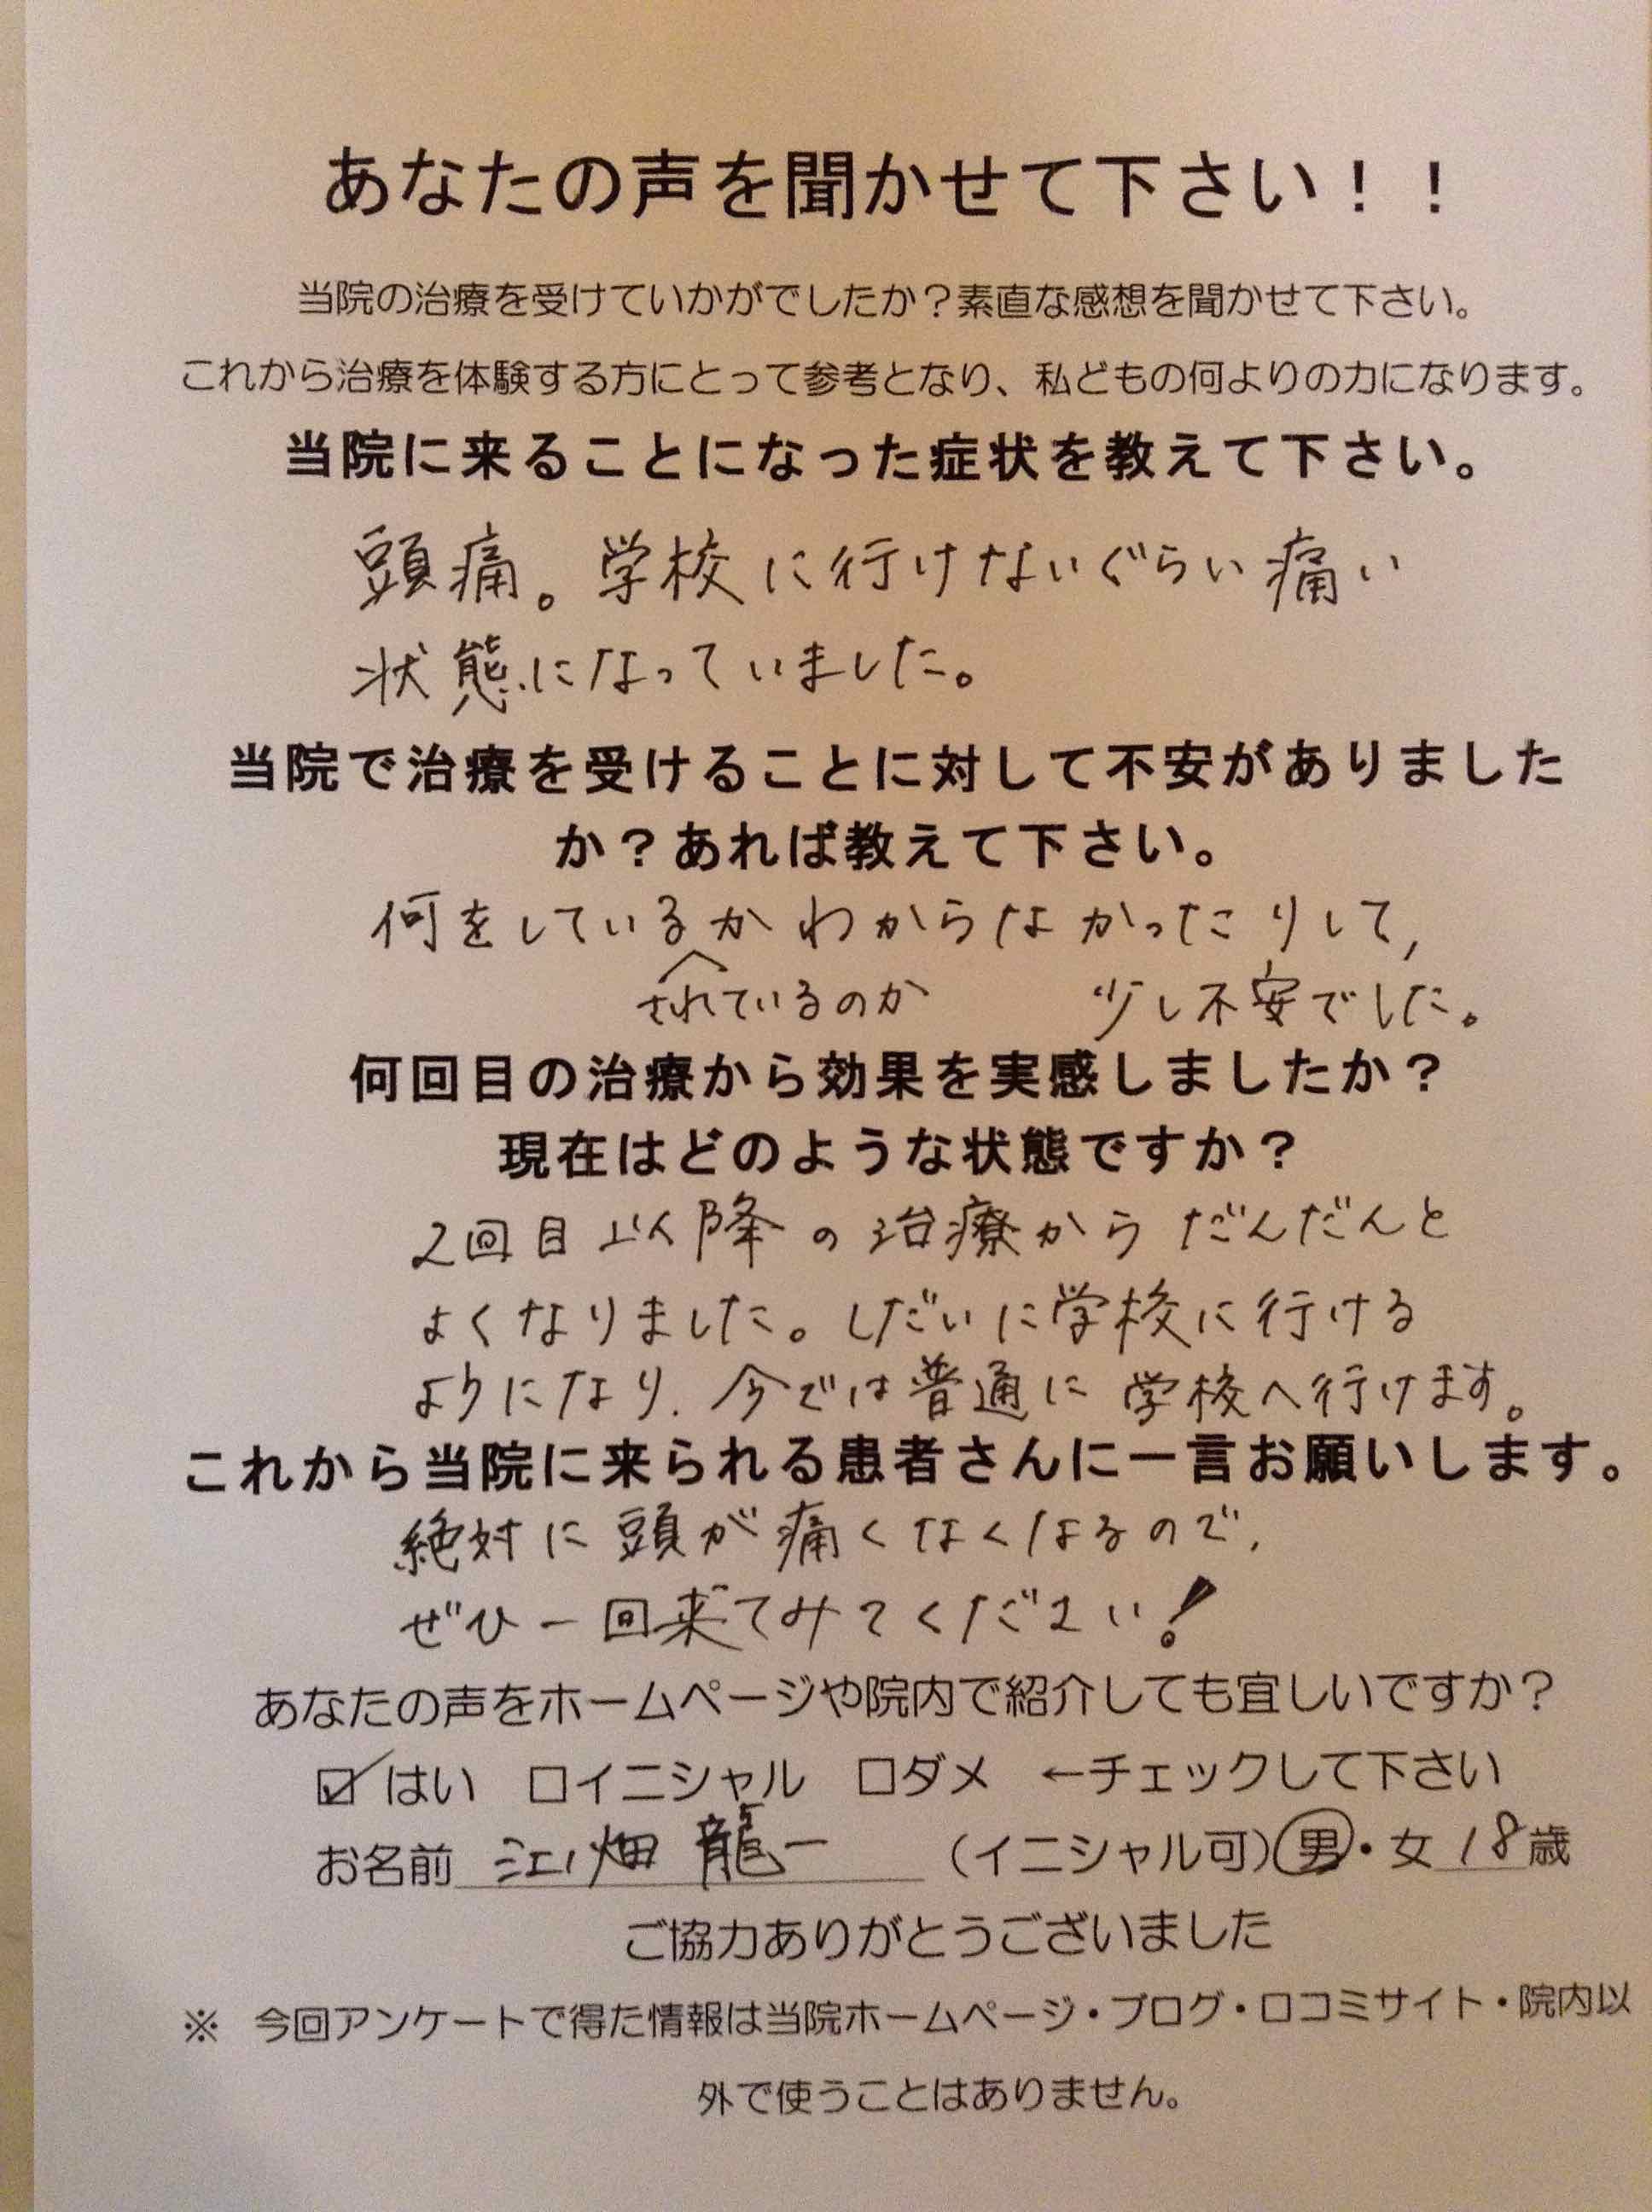 あなたの声を聞かせて下さい！！
当院の治療を受けていかがでしたか？素直な感想を聞かせて下さい。
これから治療を体験する方にとって参考となり、私どもの何よりの力になります。
当院に来ることになった症状を教えて下さい。
頭痛。学校に行けないぐらい痛い
状態になっていました。
当院で治療を受けることに対して不安がありました
か？あれば教えて下さい。
何をしているかわからなかったりして,
されているのか 少し不安でした。
何回目の治療から効果を実感しましたか？
現在はどのような状態ですか？
2回目以降の治療からだんだんと
よくなりました。しだいに学校に行ける
ようになり、今では普通に学校へ行けます。
これから当院に来られる患者さんに一言お願いします。
絶対に頭が痛くなくなるので、
ぜひ一回来てみてください！
あなたの声をホームページや院内で紹介しても宜しいですか？
☑はい □イニシャル □ダメ ←チェックして下さい
お名前 江畑 龍一 （イニシャル可）男・女 18歳
ご協力ありがとうございました
※ 今回アンケートで得た情報は当院ホームページ・ブログ・口コミサイト・院内以
外で使うことはありません。